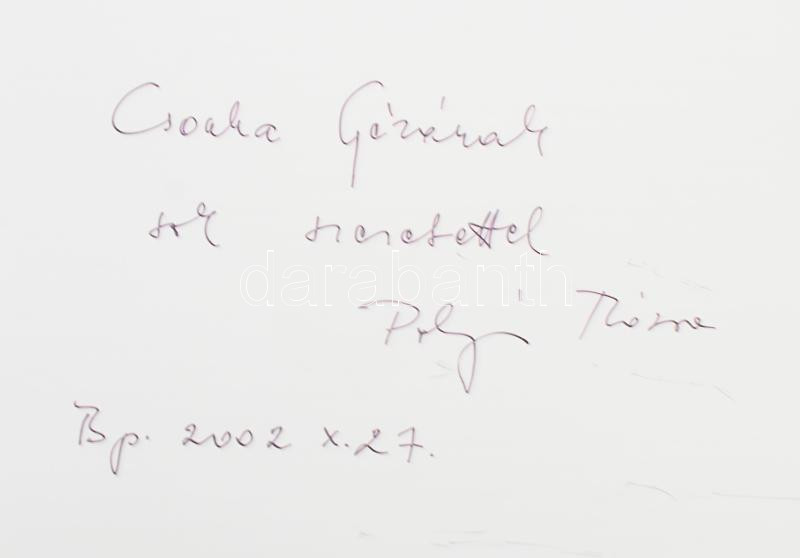 Csoaka Gézának
sok szeretettel
darabanth
Polgár Rózsa
Bp. 2002 X. 27.